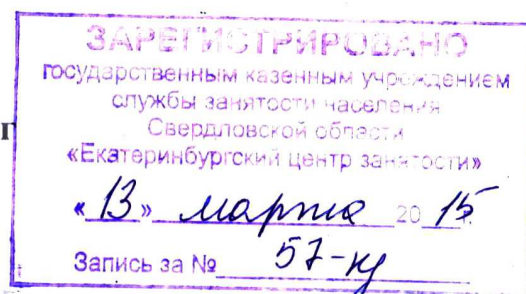 ЗАРЕГИСТРИРОВАНО
государственным казенным учреждением
службы занятости населения
Свердловской области
«Екатеринбургский центр занятости»
«13» марта 2015 г.
Запись за № 57-КД